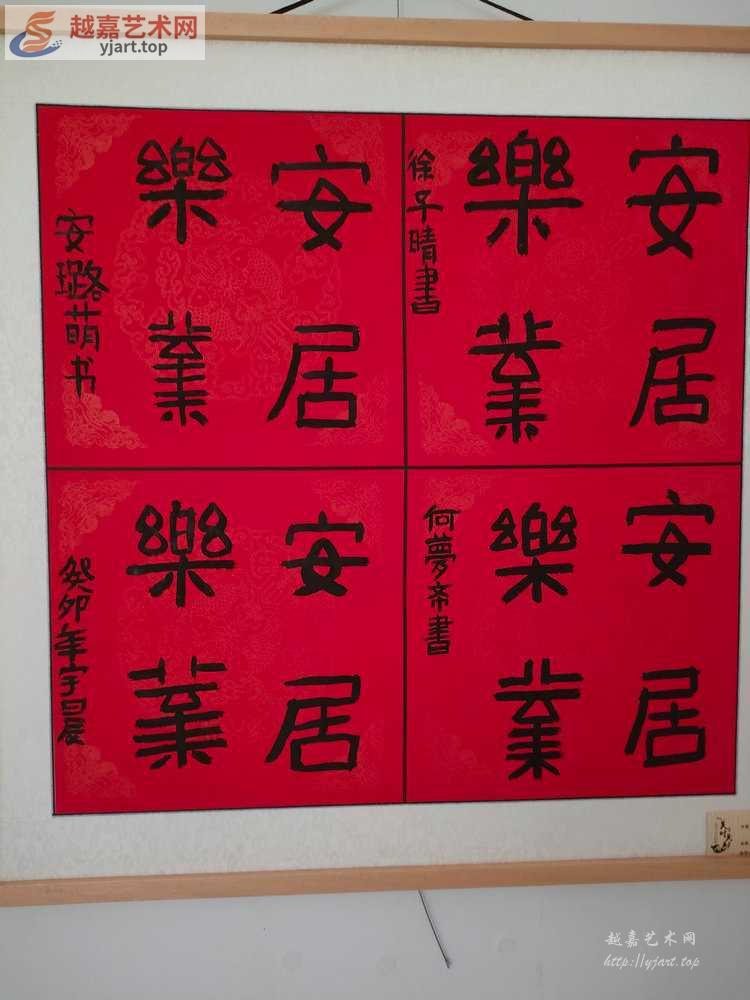 越嘉艺术网
yjart.top
安居
樂業
徐子晴書
安居
樂業
安璐萌书
安居
樂業
何夢斎書
安居
樂業
癸卯年宇晨
越嘉艺术网
http://yjart.top